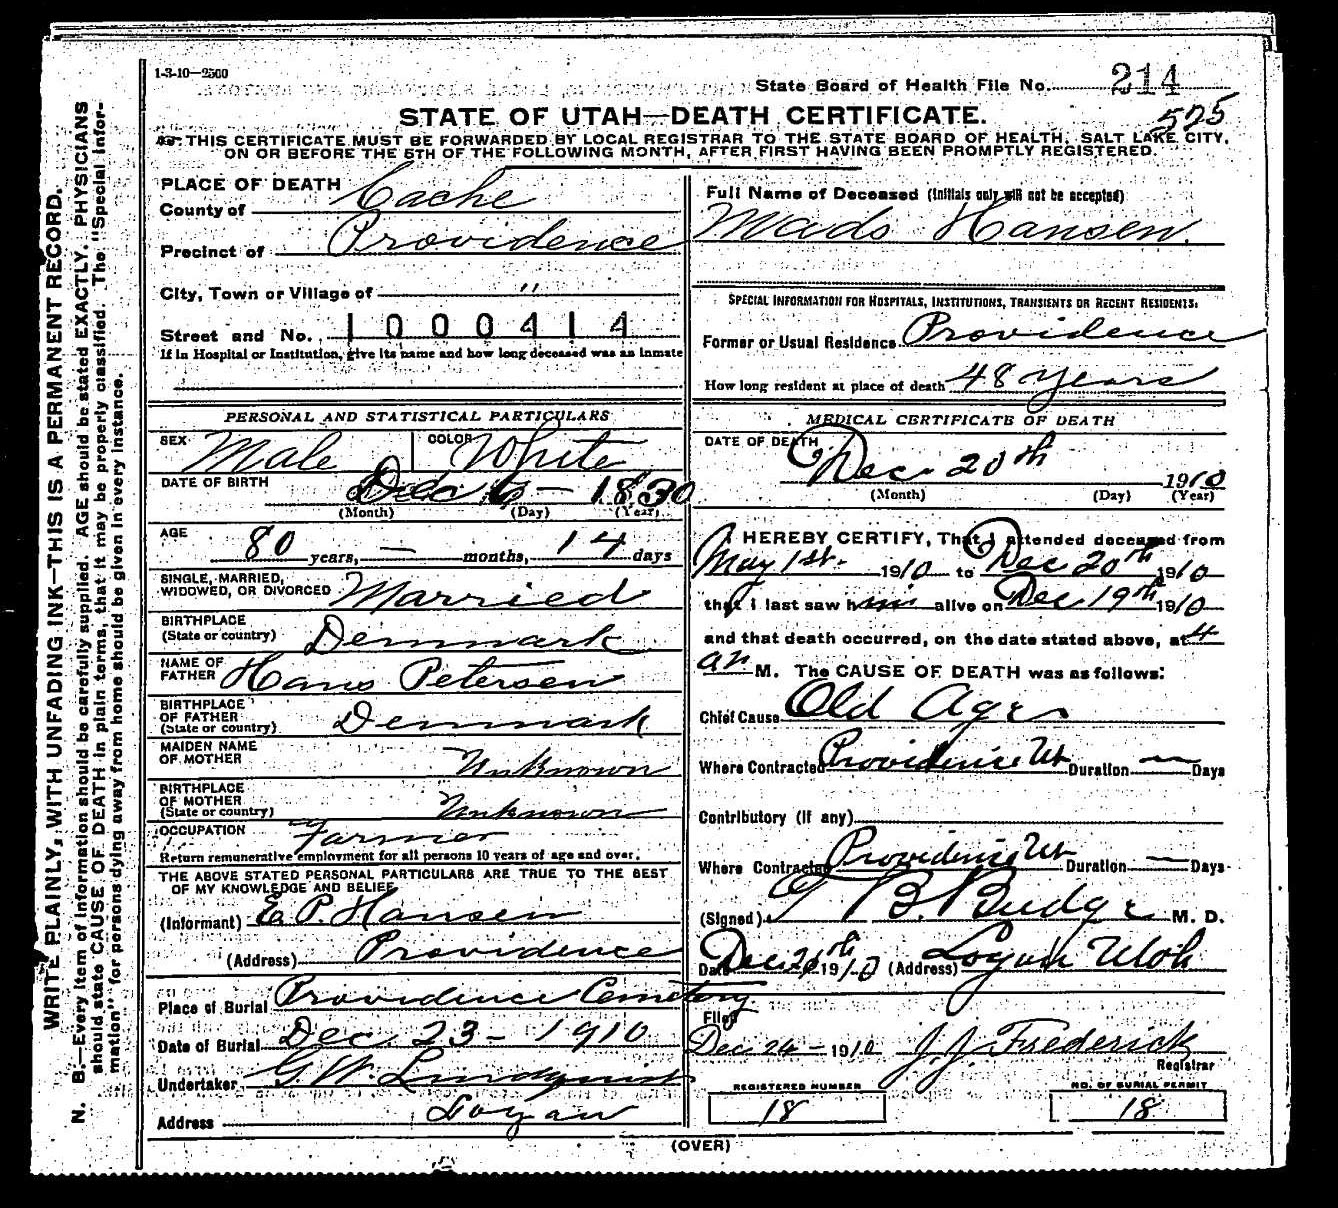 1-3-10—2500
State Board of Health File No. 214
525
STATE OF UTAH—DEATH CERTIFICATE.
THIS CERTIFICATE MUST BE FORWARDED BY LOCAL REGISTRAR TO THE STATE BOARD OF HEALTH, SALT LAKE CITY,
ON OR BEFORE THE 5TH OF THE FOLLOWING MONTH, AFTER FIRST HAVING BEEN PROMPTLY REGISTERED.
WRITE PLAINLY, WITH UNFADING INK—THIS IS A PERMANENT RECORD.
N. B.—Every item of information should be carefully supplied. AGE should be stated EXACTLY. PHYSICIANS
should state CAUSE OF DEATH in plain terms, that it may be properly classified. The "Special Infor-
mation" for persons dying away from home should be given in every instance.
PLACE OF DEATH
County of Cache
Precinct of Providence
City, Town or Village of "
Street and No. 1000414
If in Hospital or Institution, give its name and how long deceased was an inmate
PERSONAL AND STATISTICAL PARTICULARS
SEX Male COLOR White
DATE OF BIRTH Dec 6 — 1830
(Month) (Day) (Year)
AGE 80 years, — months, 14 days
SINGLE, MARRIED,
WIDOWED, OR DIVORCED Married
BIRTHPLACE
(State or country) Denmark
NAME OF
FATHER Hans Petersen
BIRTHPLACE
OF FATHER
(State or country) Denmark
MAIDEN NAME
OF MOTHER Unknown
BIRTHPLACE
OF MOTHER
(State or country) Unknown
OCCUPATION Farmer
Return remunerative employment for all persons 10 years of age and over.
THE ABOVE STATED PERSONAL PARTICULARS ARE TRUE TO THE BEST
OF MY KNOWLEDGE AND BELIEF
(Informant) E P. Hansen
(Address) Providence
Place of Burial Providence Cemetery
Date of Burial Dec. 23 – 1910
Undertaker G. W. Lundquist
Address Logan
Full Name of Deceased (Initials only will not be accepted)
Mads Hansen.
SPECIAL INFORMATION FOR HOSPITALS, INSTITUTIONS, TRANSIENTS OR RECENT RESIDENTS:
Former or Usual Residence Providence
How long resident at place of death 48 years
MEDICAL CERTIFICATE OF DEATH
DATE OF DEATH
Dec 20th 1910
(Month) (Day) (Year)
I HEREBY CERTIFY, That I attended deceased from
May 1st. 1910 to Dec 20th 1910
that I last saw him alive on Dec 19th 1910
and that death occurred, on the date stated above, at 4
am M. The CAUSE OF DEATH was as follows:
Chief Cause Old Age
Where Contracted Providence Ut Duration — Days
Contributory (if any)
Where Contracted Providence Ut Duration — Days
(Signed) T B. Budge M. D.
Date Dec 1910 (Address) Logan Utah
Filed
Dec 24 – 1910 J. J. Frederick
Registrar
REGISTERED NUMBER
18
NO. OF BURIAL PERMIT
18
(OVER)